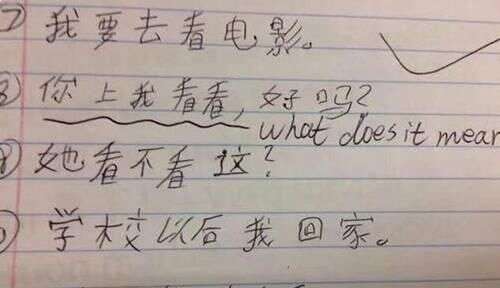 ⑦ 我要去看电影。
⑧ 你上我看看,好吗?
what does it mean
⑨ 她看不看这?
学校以后我回家。